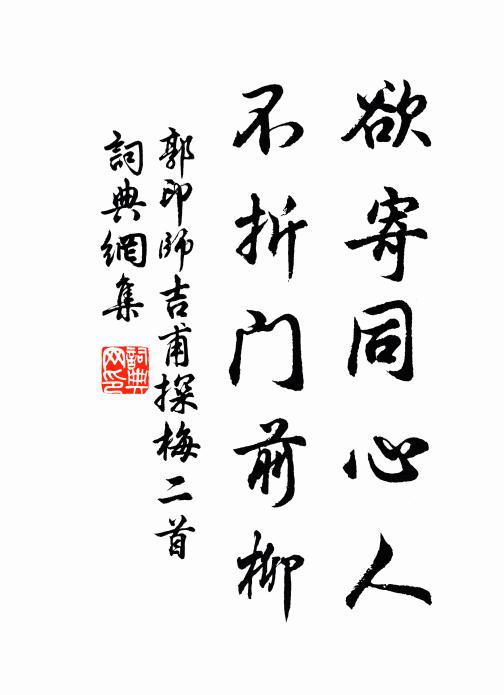 欲寄同心人
不折门前柳
郭印師吉甫探梅二首
詞典網集
詞典网印